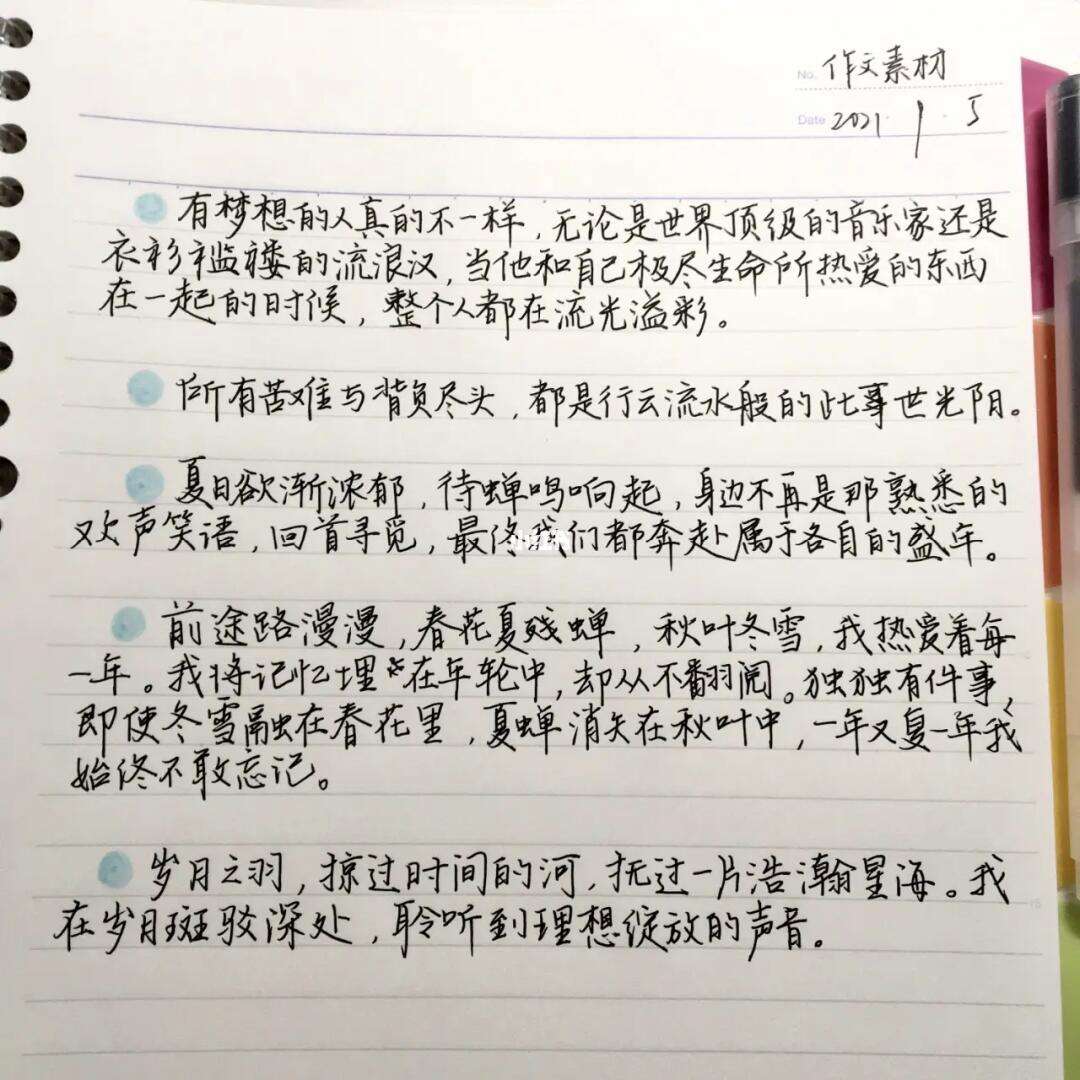 No. 作文素材
Date 2021. 1. 5
有梦想的人真的不一样，无论是世界顶级的音乐家还是
衣衫褴褛的流浪汉，当他和自己极尽生命所热爱的东西
在一起的时候，整个人都在流光溢彩。
所有苦难与背负尽头，都是行云流水般的此事世光阴。
夏日欲渐浓郁，待蝉鸣响起，身边不再是那熟悉的
欢声笑语，回首寻觅，最终我们都奔赴属于各自的盛年。
前途路漫漫，春花夏残蝉，秋叶冬雪，我热爱着每
一年。我将记忆埋在年轮中，却从不翻阅。独独有件事，
即使冬雪融在春花里，夏蝉消失在秋叶中，一年又复一年我
始终不敢忘记。
岁月之羽，掠过时间的河，抚过一片浩瀚星海。我
在岁月斑驳深处，聆听到理想绽放的声音。
15